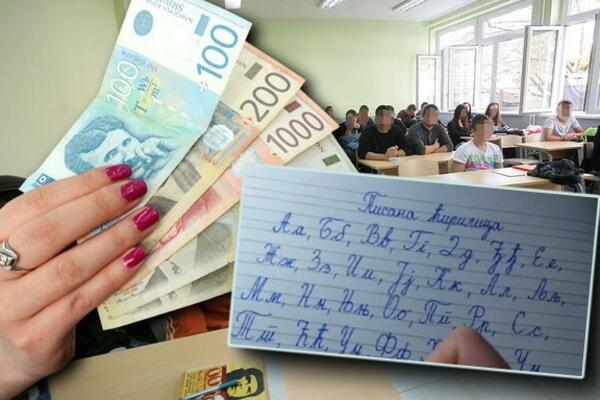 100
100
200
1000
Писана ћирилица
Аа, Бб, Вв, Гг, Дд, Ђђ, Ее,
Жж, Зз, Ии, Јј, Кк, Лл, Љљ,
Мм, Нн, Њњ, Оо, Пп, Рр, Сс,
Тт, Ћћ, Уу, Фф,